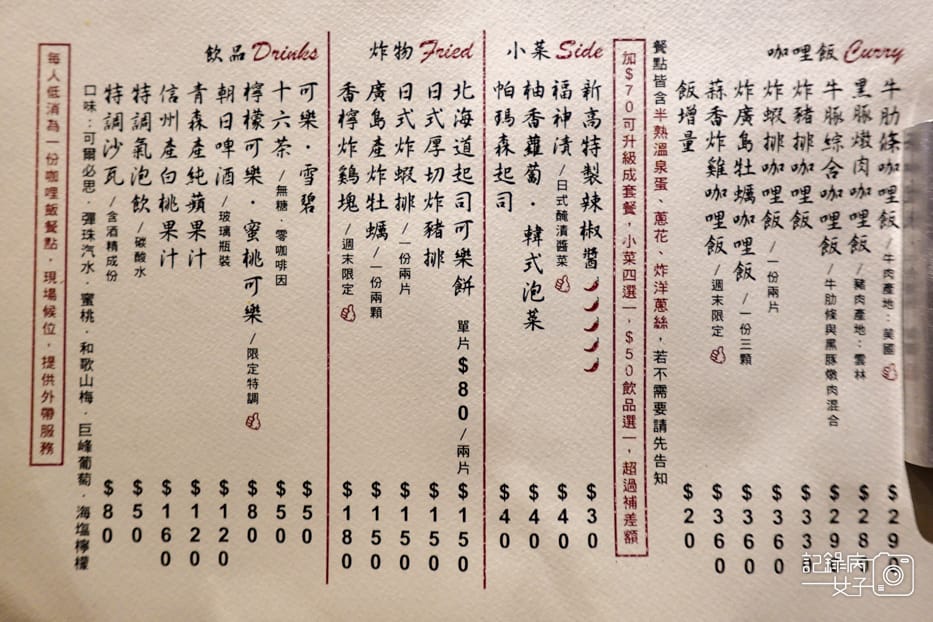 咖哩飯 Curry
牛肋條咖哩飯/牛肉產地：美國 $290
黑豚燉肉咖哩飯/豬肉產地：雲林 $280
牛豚綜合咖哩飯/牛肋條與黑豚燉肉混合 $290
炸豬排咖哩飯
炸蝦排咖哩飯/一份兩片 $360
炸廣島牡蠣咖哩飯/一份三顆 $360
蒜香炸雞咖哩飯/週末限定 $360
飯增量 $20
餐點皆含半熟溫泉蛋、蔥花、炸洋蔥絲，若不需要請先告知
加$70可升級成套餐，小菜四選一，$50飲品選一，超過補差額
小菜 Side
新高特製辣椒醬 $30
福神漬/日式醃漬醬菜 $40
柚香蘿蔔．韓式泡菜 $40
帕瑪森起司 $40
炸物 Fried
北海道起司可樂餅 單片$80/兩片 $150
日式厚切炸豬排 $150
日式炸蝦排/一份兩片 $150
廣島產炸牡蠣/一份兩顆 $150
香檸炸雞塊/週末限定 $180
飲品 Drinks
可樂．雪碧 $50
十六茶/無糖．零咖啡因 $50
檸檬可樂．蜜桃可樂/限定特調 $80
朝日啤酒/玻璃瓶裝 $120
青森產純蘋果汁 $120
信州產白桃果汁 $160
特調氣泡飲/碳酸水 $50
特調沙瓦/含酒精成份 $80
口味：可爾必思．彈珠汽水．蜜桃．和歌山梅．巨峰葡萄．海塩檸檬
每人低消為一份咖哩飯餐點，現場候位，提供外帶服務
記錄病女子